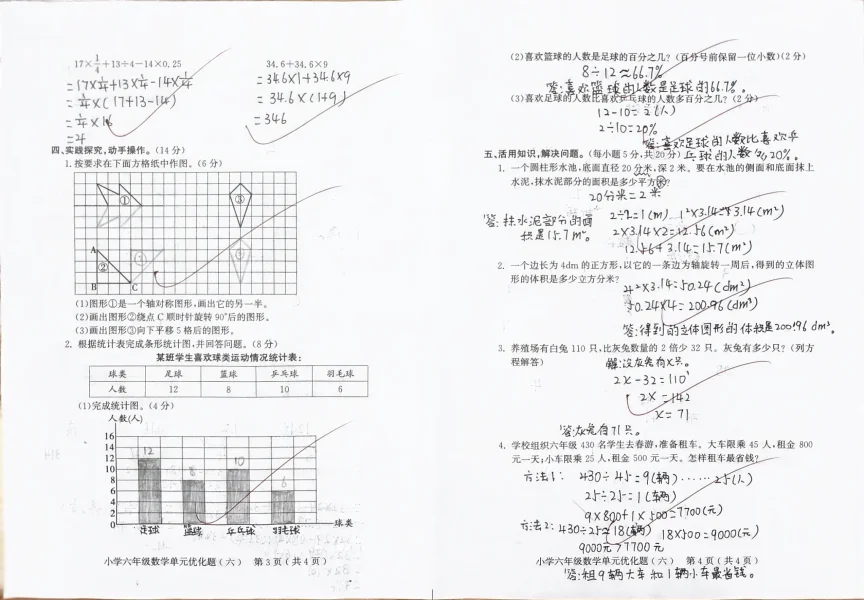 17×1/4+13÷4−14×0.25
=17×1/4+13×1/4−14×1/4
=1/4×(17+13−14)
=1/4×16
=4
34.6+34.6×9
=34.6×1+34.6×9
=34.6×(1+9)
=346
四、实践探究,动手操作。(14分)
1.按要求在下面方格纸中作图。(6分)
①
③
A
②
B
C
(1)图形①是一个轴对称图形,画出它的另一半。
(2)画出图形②绕点C顺时针旋转90°后的图形。
(3)画出图形③向下平移5格后的图形。
2.根据统计表完成条形统计图,并回答问题。(8分)
某班学生喜欢球类运动情况统计表:
球类 足球 篮球 乒乓球 羽毛球
人数 12 8 10 6
(1)完成统计图。(4分)
人数(人)
16
14
12
10
8
6
4
2
0
12
8
10
6
足球 篮球 乒乓球 羽毛球 球类
小学六年级数学单元优化题(六) 第3页(共4页)
(2)喜欢篮球的人数是足球的百分之几?(百分号前保留一位小数)(2分)
8÷12≈66.7%
答:喜欢篮球的人数是足球的66.7%。
(3)喜欢足球的人数比喜欢乒乓球的人数多百分之几?(2分)
12-10=2(人)
2÷10=20%
答:喜欢足球的人数比喜欢乒
乓球的人数多20%。
五、活用知识,解决问题。(每小题5分,共20分)
1.一个圆柱形水池,底面直径20分米,深2米。要在水池的侧面和底面抹上
水泥,抹水泥部分的面积是多少平方米?
20分米=2米
2÷2=1(m) 1²×3.14=3.14(m²)
2×3.14×2=12.56(m²)
12.56+3.14=15.7(m²)
答:抹水泥部分的面
积是15.7m²。
2.一个边长为4dm的正方形,以它的一条边为轴旋转一周后,得到的立体图
形的体积是多少立方分米?
4²×3.14=50.24(dm²)
50.24×4=200.96(dm³)
答:得到的立体图形的体积是200.96dm³。
3.养殖场有白兔110只,比灰兔数量的2倍少32只。灰兔有多少只?(列方
程解答)
解:设灰兔有x只。
2x-32=110
2x=142
x=71
答:灰兔有71只。
4.学校组织六年级430名学生去春游,准备租车。大车限乘45人,租金800
元一天;小车限乘25人,租金500元一天。怎样租车最省钱?
方法1: 430÷45=9(辆)……25(人)
25÷25=1(辆)
9×800+1×500=7700(元)
方法2: 430÷25≈18(辆) 18×500=9000(元)
9000元>7700元
小学六年级数学单元优化题(六) 第4页(共4页)
答:租9辆大车和1辆小车最省钱。